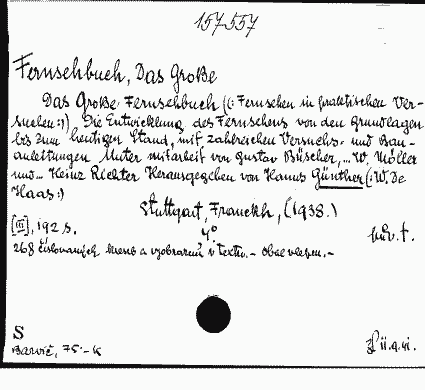 157557
Fernsehbuch, Das Große
Das Große Fernsehbuch (: Fernsehen in praktischen Ver-
suchen :) Die Entwicklung des Fernsehens von den Grundlagen
bis zum heutigen Stand, mit zahlreichen Versuchs- und Bau-
anleitungen Unter mitarbeit von Gustav Büscher, ... W. Möller
und ... Heinz Richter Herausgegeben von Hanns Günther (: W. De
Haas :)
Stuttgart, Franckh, (1938.)
[III], 192 s. 4° pův. t.
268 číslovaných kreseb a vyobrazení v textu. - Obal vlepen. -
S
Barvič, 75.- K